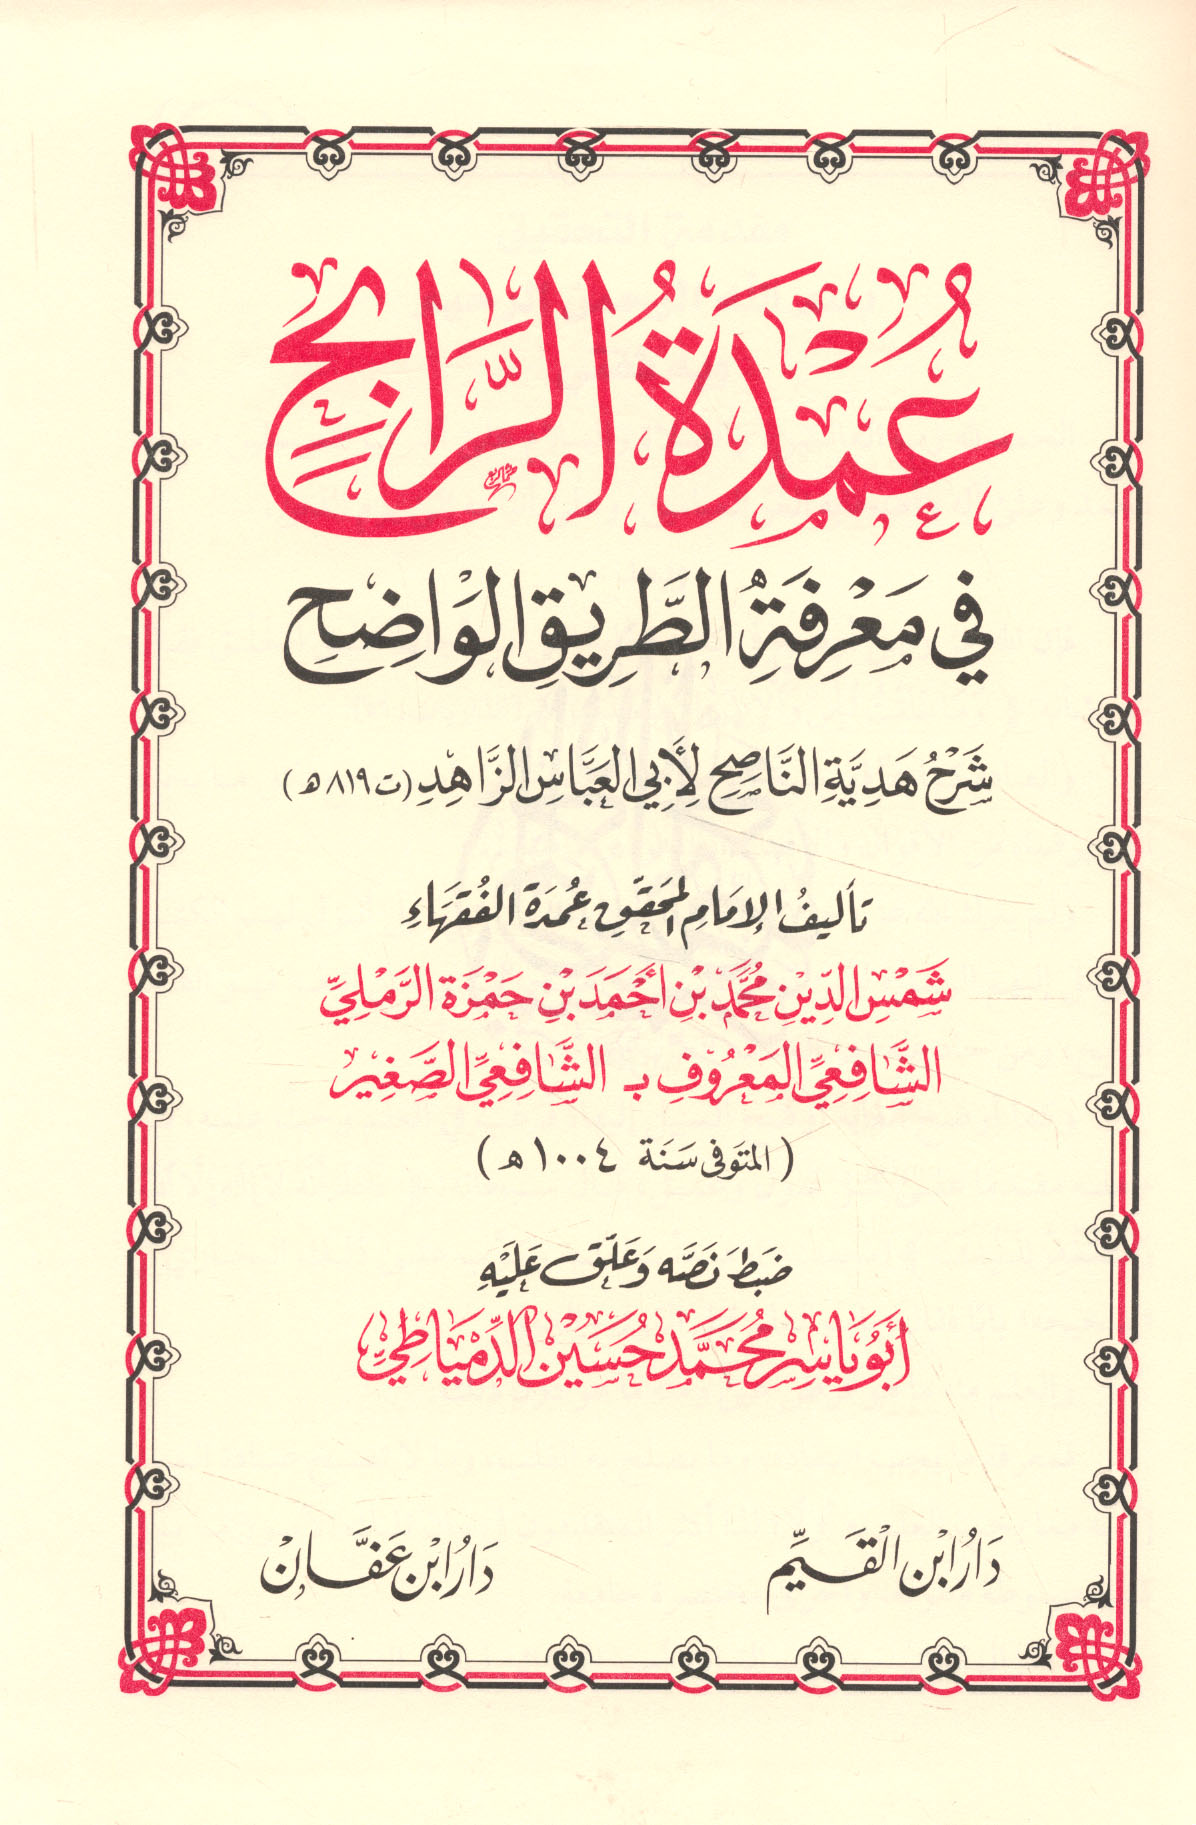 عُمْدَةُ الرَّابِحِ
فِي مَعْرِفَةِ الطَّرِيقِ الوَاضِحِ
شَرْحُ هَدِيَّةِ النَّاصِحِ لِأَبِي العَبَّاسِ الزَّاهِدِ (ت ٨١٩ هـ)
تأليفُ الإمَامِ المحَقِّقِ عُمدَة الفُقهَاءِ
شَمْسِ الدِّينِ مُحمَّد بْنِ أَحْمَدَ بْنِ حَمْزَة الرَّمْلِيِّ
الشَّافِعِيِّ المَعْرُوفِ بـ الشَّافِعِيِّ الصَّغِيرِ
(المتَوفى سَنَة ١٠٠٤ هـ)
ضَبَطَ نَصَّه وَعَلَّق عَلَيْهِ
أبُو يَاسِر مُحَمَّد حُسَيْن الدِّمْيَاطِيّ
دَارُ ابْن القَيِّم
دَارُ ابْن عَفَّان